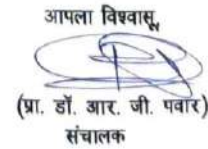 आपला विश्वासू,
(प्रा. डॉ. आर. जी. पवार)
संचालक